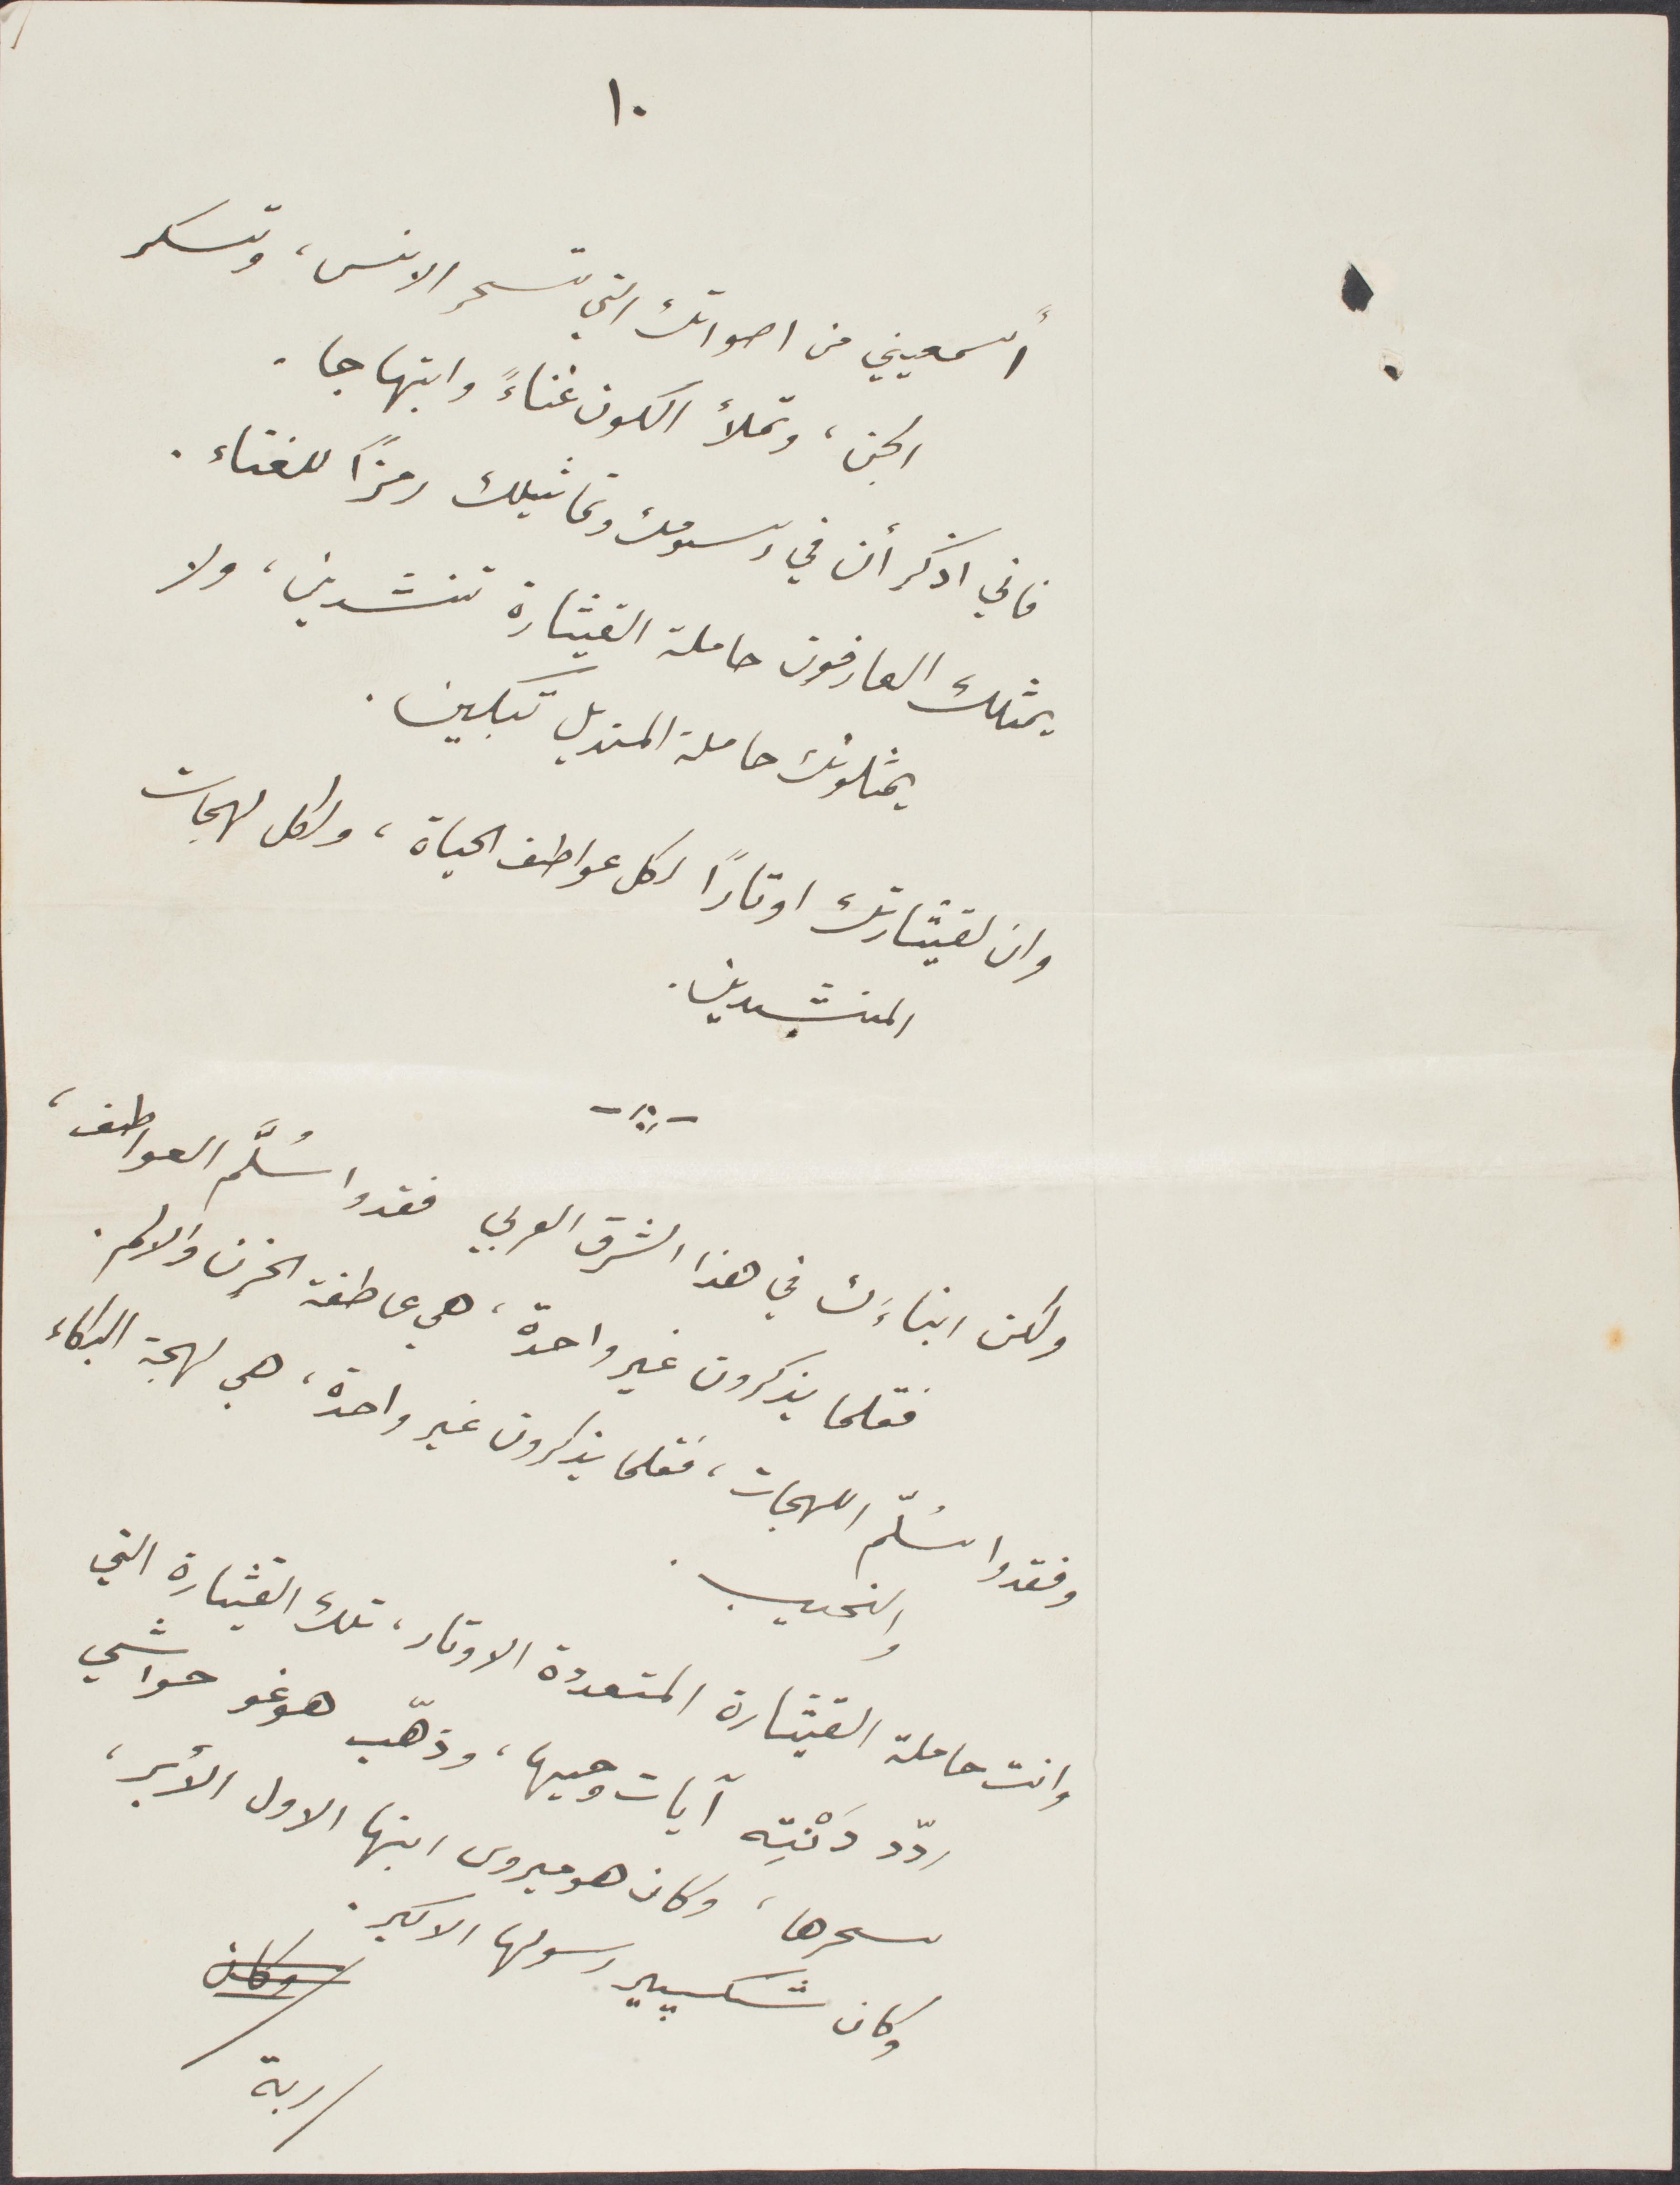 ١٠
أسمعيني من اصواتك التي تسحر الانس، وتسكر
الجن، وتملأ الكون غناءً وابتهاجا.
فاني اذكر أن في رسومك وتماثيلك رمزًا للغناء.
يمثلك العارفون حاملة القيثارة تنشدين، ولا
يمثلونك حاملة المنديل تبكين.
وان لقيثارتك اوتارًا لكل عواطف الحياة، ولكل لهجات
المنشدين.
ولكن ابناءَك في هذا الشرق العربي فقدوا سُلَّم العواطف،
فقلما يذكرون غير واحدة، هي عاطفة الحزن والالم.
وفقدوا سُلّم اللهجات، فقلما يذكرون غير واحدة، هي لهجة البكاء
والنحيب.
وانت حاملة القيثارة المتعددة الاوتار، تلك القيثارة التي
ردّد دَنْتِه آيات وحيها، وذهّب هوغو حواشي
سحرها، وكان هوميروس ابنها الاول الأبر،
وكان شكسبير رسولها الاكبر.
وكان
ربة